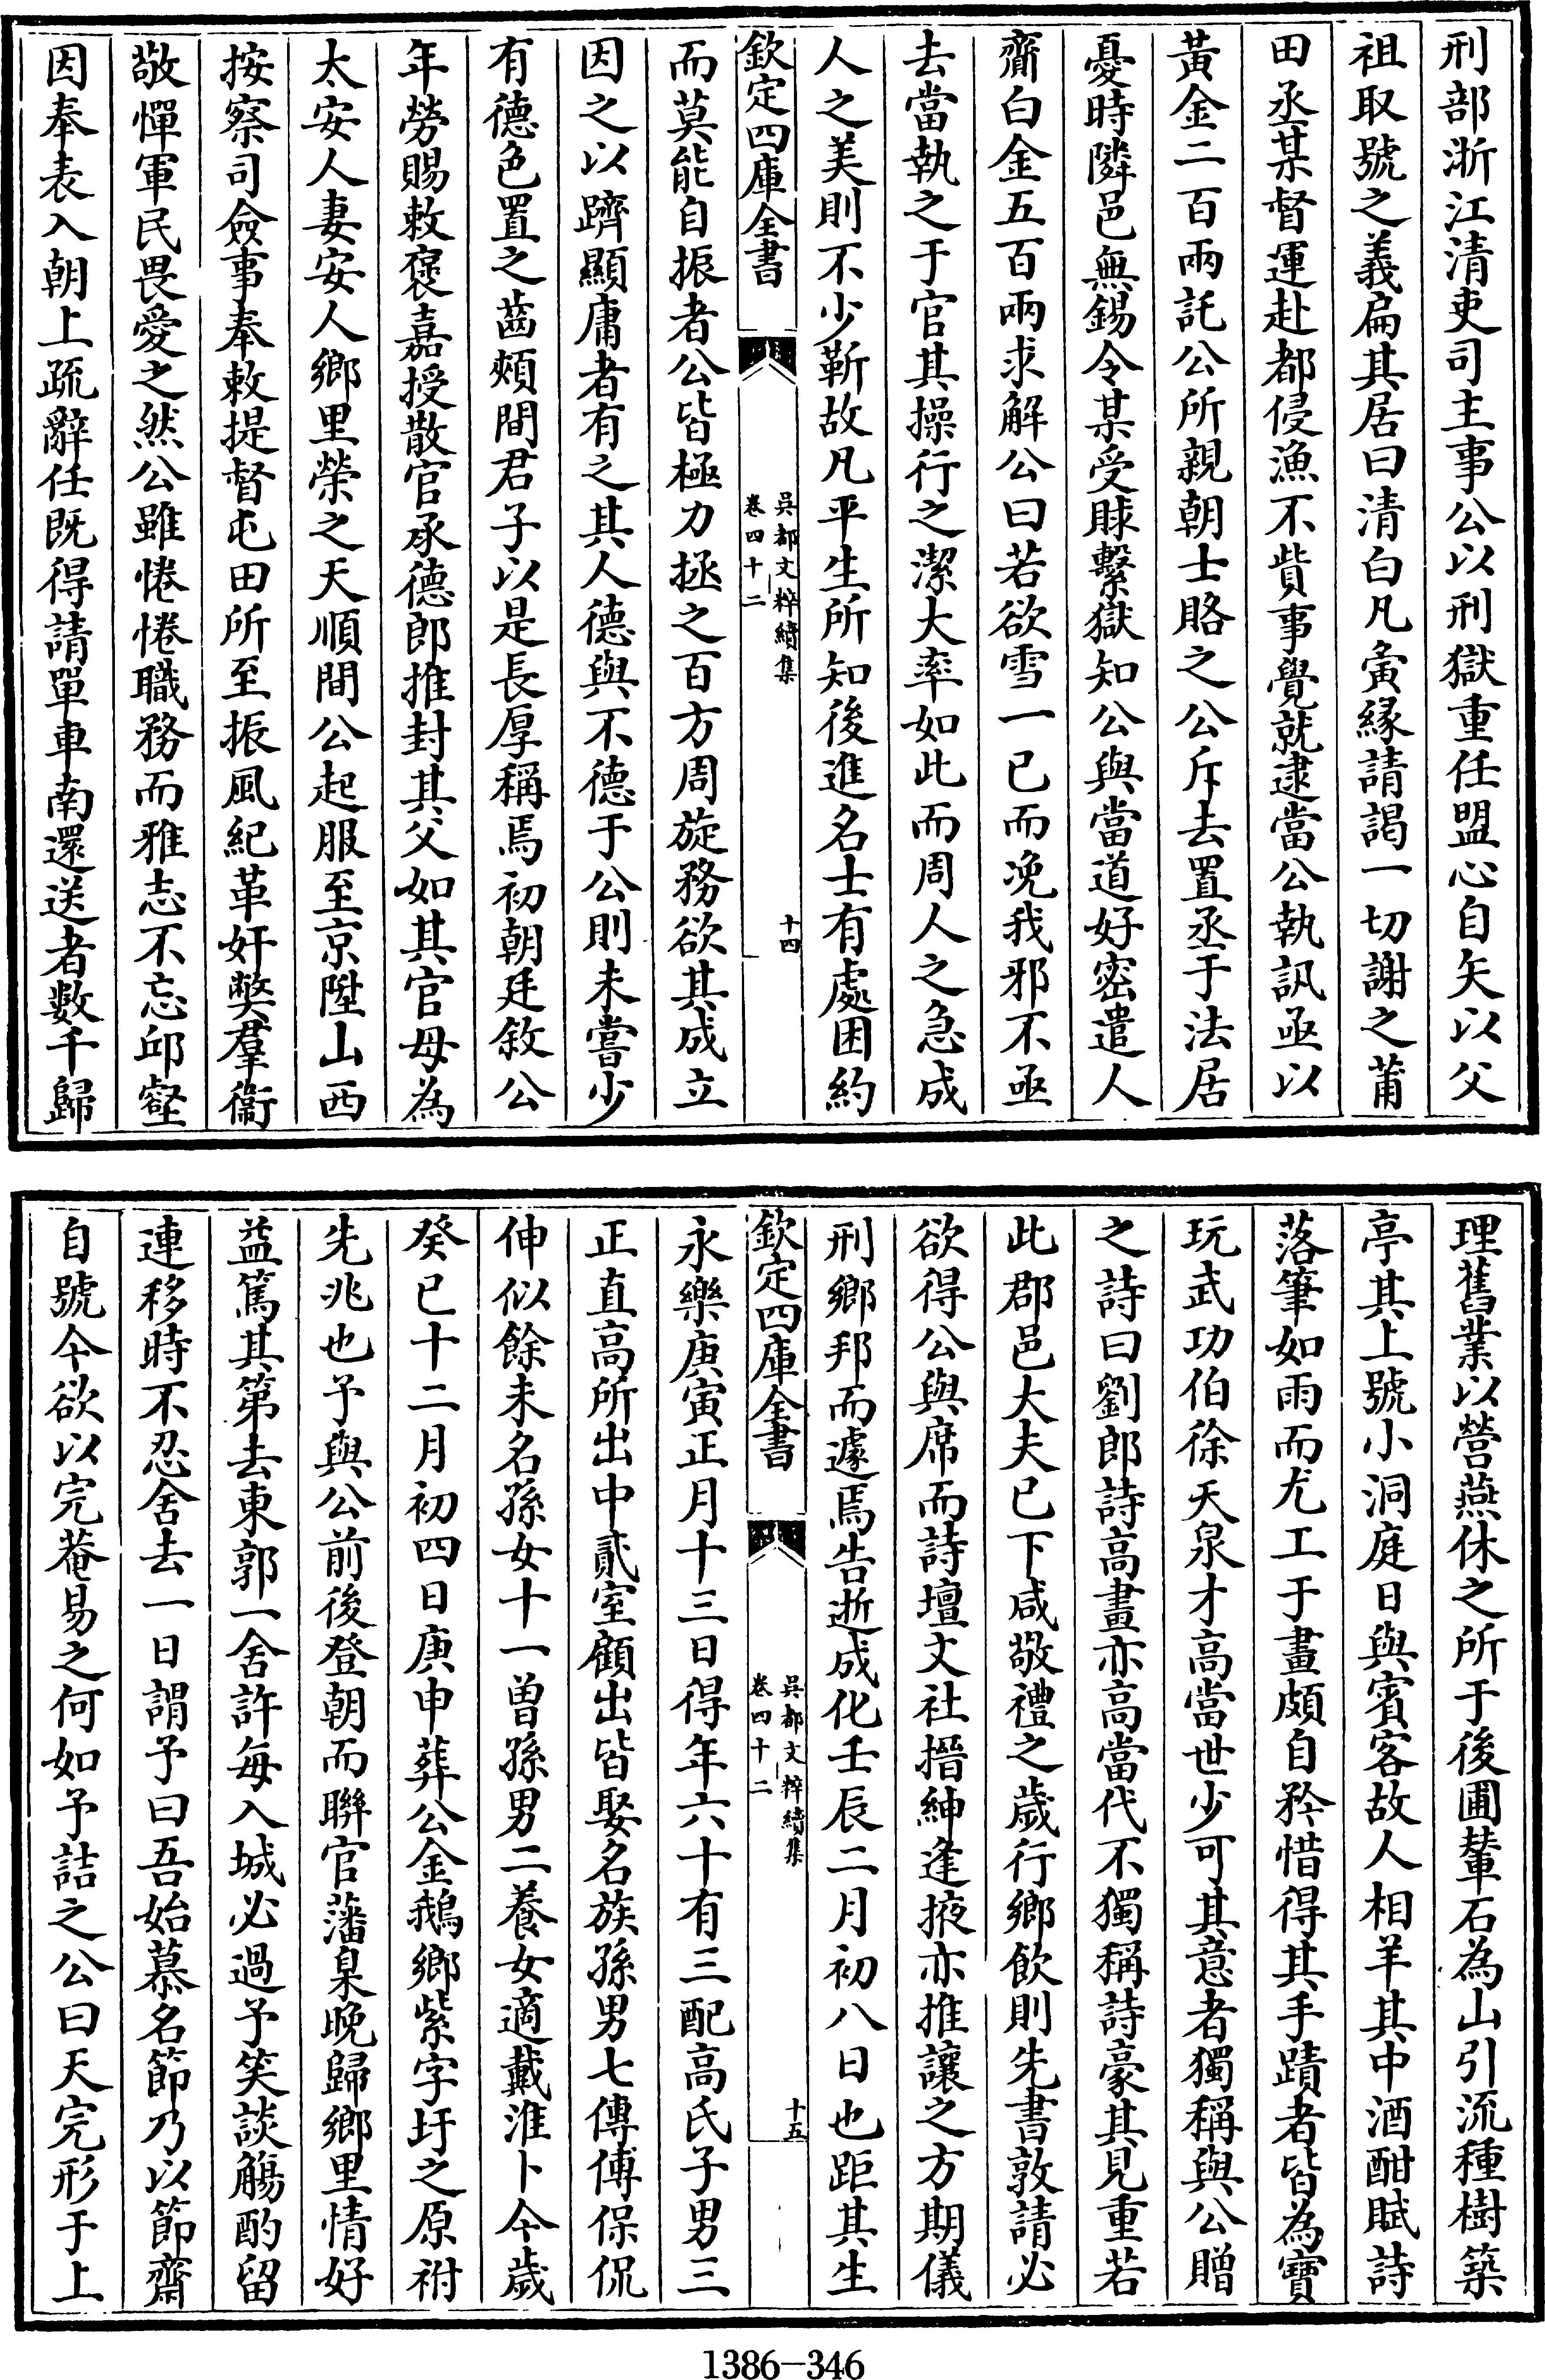 刑部浙江清吏司主事公以刑獄重任盟心自矢以父
祖取號之義扁其居曰清白凡夤緣請謁一切謝之莆
田丞某督運赴都侵漁不貲事覺就逮當公執訊亟以
黃金二百兩託公所親朝士賂之公斥去置丞于法居
憂時隣邑無錫令某受賕繫獄知公與當道好密遣人
齎白金五百兩求解公曰若欲雪一已而浼我邪不亟
去當執之于官其操行之潔大率如此而周人之急成
人之美則不少靳故凡平生所知後進名士有處困約
欽定四庫全書
吳都文粹續集
卷四十二
十四
而莫能自振者公皆極力拯之百方周旋務欲其成立
因之以躋顯庸者有之其人德與不德于公則未嘗少
有德色置之齒頰間君子以是長厚稱焉初朝廷敘公
年勞賜敕褒嘉授散官承德郎推封其父如其官母為
太安人妻安人鄉里榮之天順間公起服至京陞山西
按察司僉事奉敕提督屯田所至振風紀革奸弊羣衞
敬憚軍民畏愛之然公雖惓惓職務而雅志不忘邱壑
因奉表入朝上疏辭任既得請單車南還送者數千歸
理舊業以營燕休之所于後圃輦石為山引流種樹築
亭其上號小洞庭日與賓客故人相羊其中酒酣賦詩
落筆如雨而尤工于畫頗自矜惜得其手蹟者皆為寶
玩武功伯徐天泉才高當世少可其意者獨稱與公贈
之詩曰劉郎詩高畫亦高當代不獨稱詩豪其見重若
此郡邑大夫已下咸敬禮之歲行鄉飲則先書敦請必
欲得公與席而詩壇文社搢紳逢掖亦推讓之方期儀
刑鄉邦而遽焉告逝成化壬辰二月初八日也距其生
欽定四庫全書
吳都文粹續集
卷四十二
十五
永樂庚寅正月十三日得年六十有三配高氏子男三
正直高所出中貳室顧出皆娶名族孫男七傳傅保侃
伸似餘未名孫女十一曾孫男二養女適戴淮卜今歲
癸已十二月初四日庚申葬公金鵝鄉紫字圩之原祔
先兆也予與公前後登朝而聯官藩臬晚歸鄉里情好
益篤其第去東郭一舍許每入城必過予笑談觴酌留
連移時不忍舍去一日謂予曰吾始慕名節乃以節齋
自號今欲以完菴易之何如予詰之公曰天完形于上
1386-346